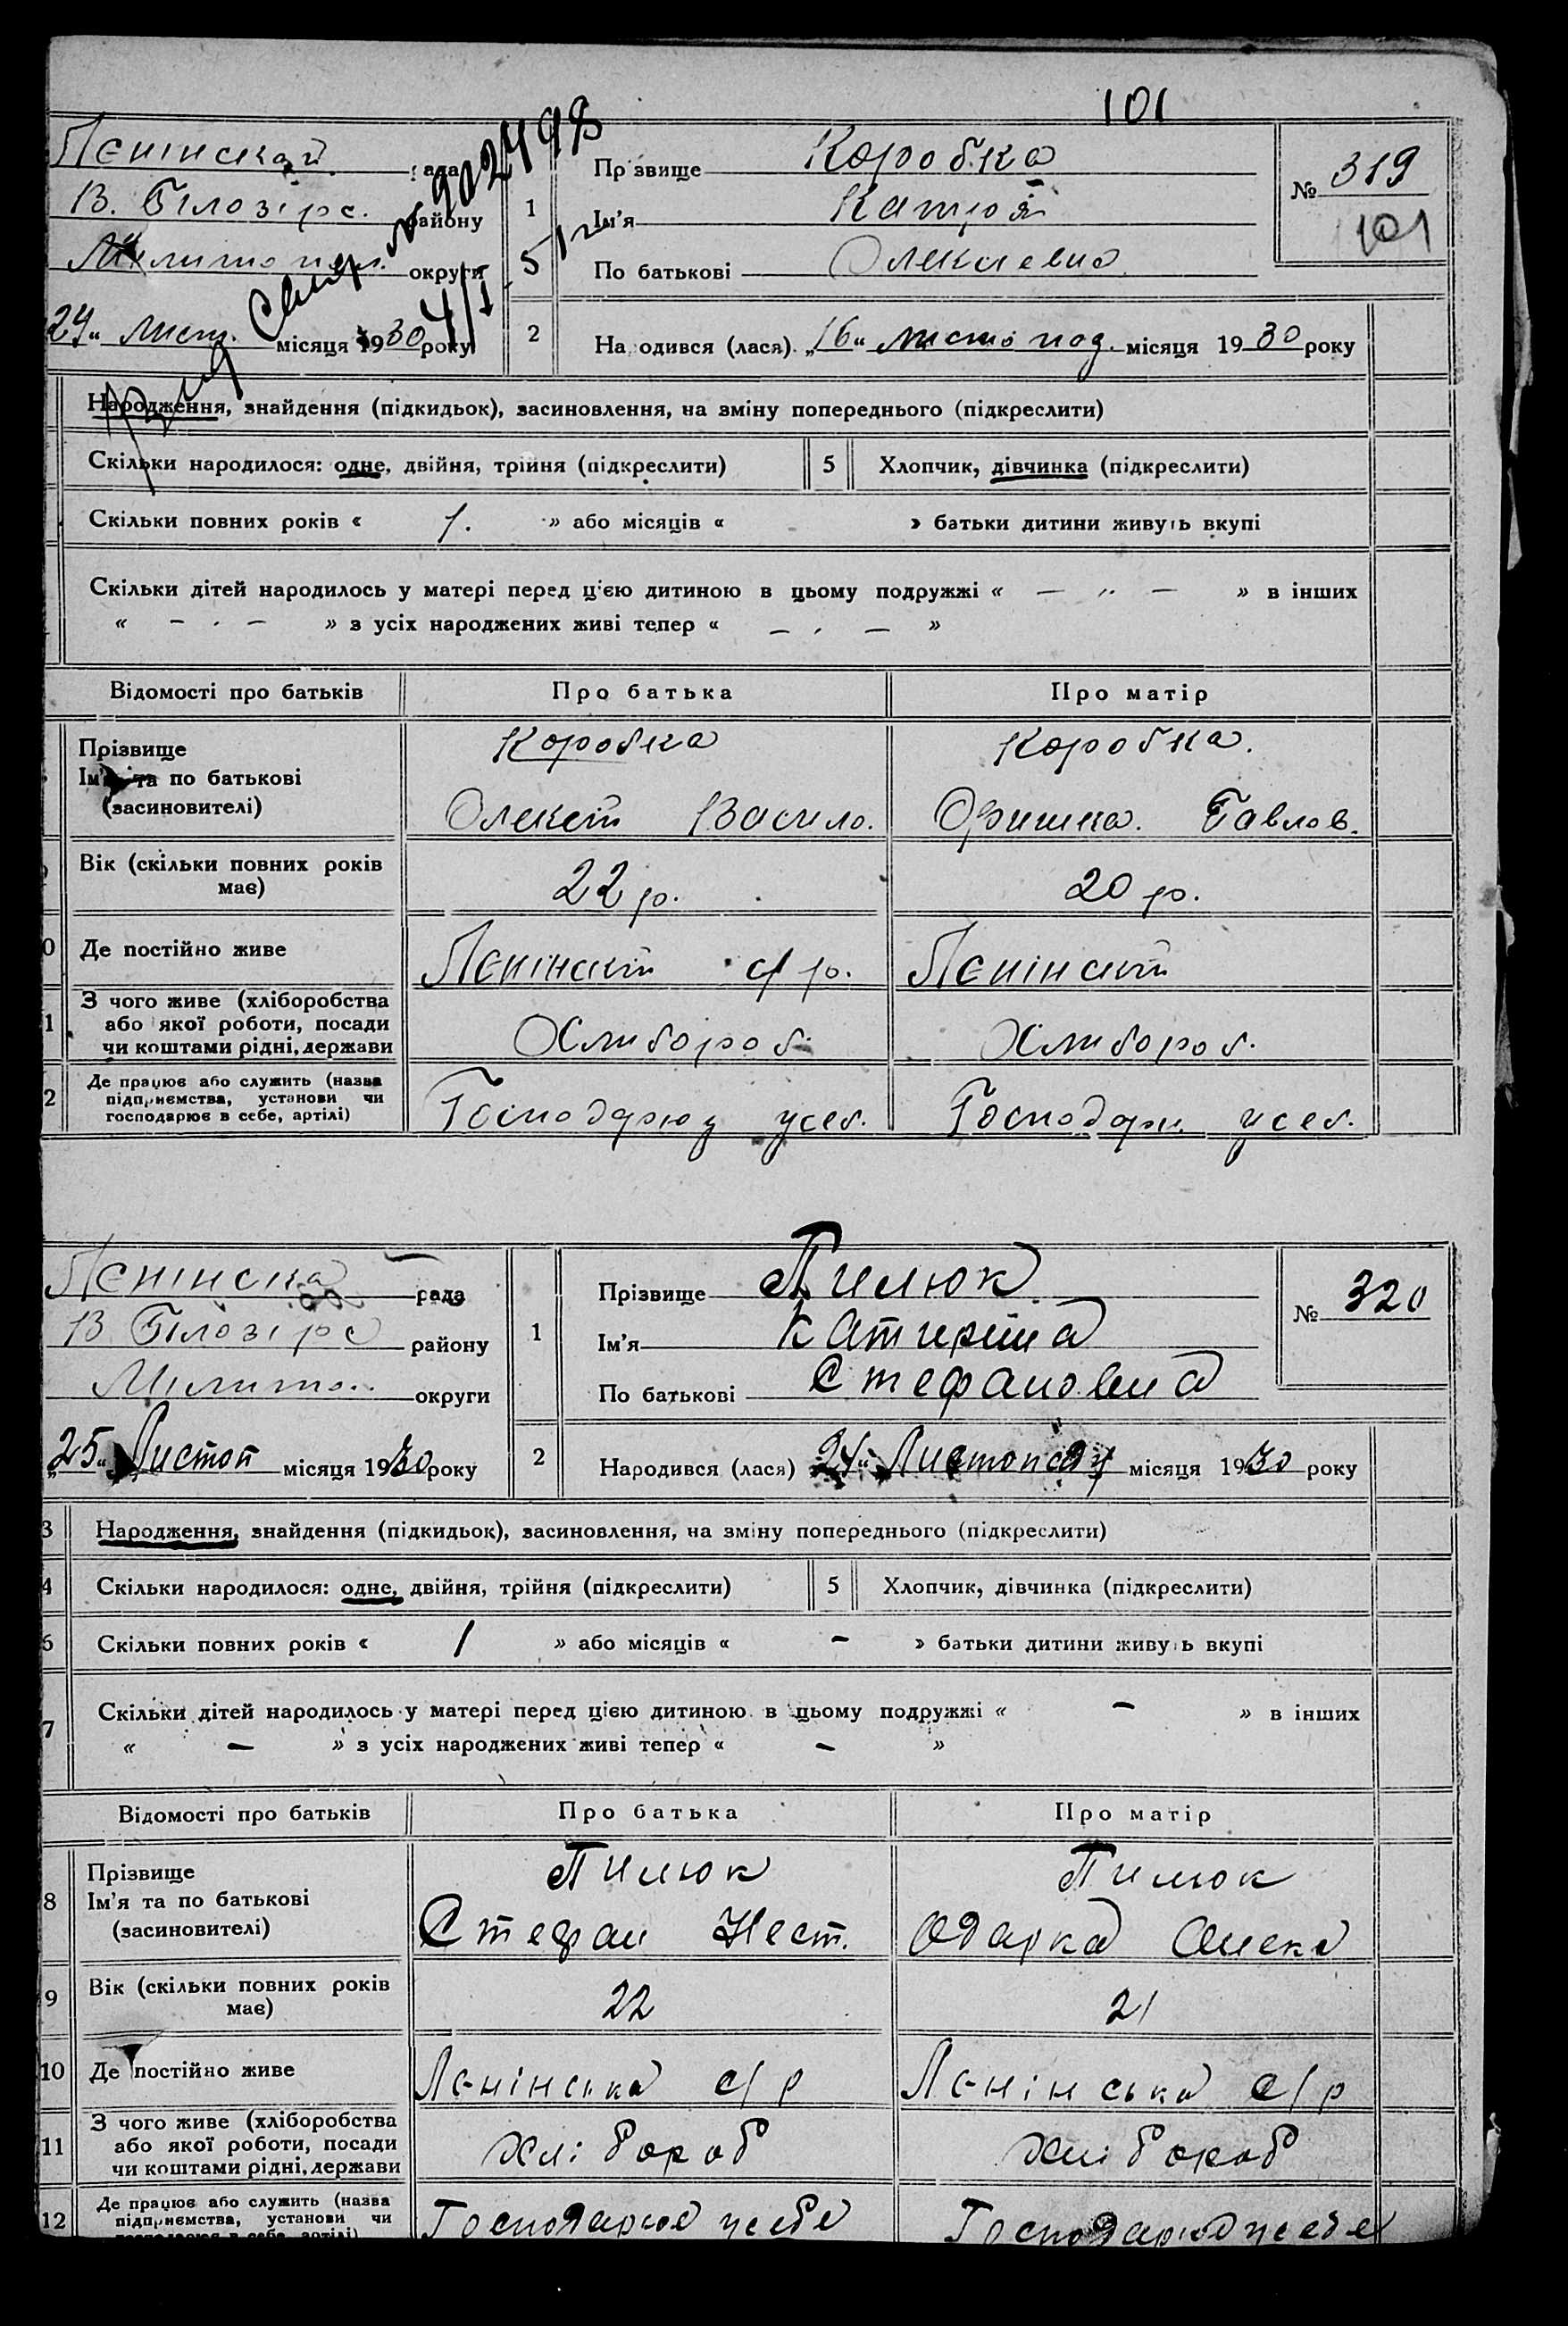 101
Ленінская рада
В. Білозірс. району
Мелитопол. округи
24 лист. місяця 1930 року
1
Прізвище Коробка
Ім'я Катря
По батькові Олексіевна
№ 319
101
2
Народився (лася) „16“ листопад. місяця 1930 року
Народження, знайдення (підкидьок), засиновлення, на зміну попереднього (підкреслити)
Скільки народилося: одне, двійня, трійня (підкреслити)
5 Хлопчик, дівчинка (підкреслити)
Скільки повних років « 1. » або місяців « » батьки дитини живуть вкупі
Скільки дітей народилось у матері перед цією дитиною в цьому подружжі « — „ — » в інших
« — . — » з усіх народжених живі тепер « — . — »
Відомості про батьків Про батька Про матір
Прізвище Коробка Коробка.
Ім'я та по батькові
(засиновителі) Олексій Васило. Оришка. Павлов.
Вік (скільки повних років
має) 22 р. 20 р.
0 Де постійно живе Ленінскій с/р. Ленінскій
З чого живе (хліборобства
1 або якої роботи, посади
чи коштами рідні, держави Хлибороб. Хлибороб.
Де працює або служить (назва
2 підприємства, установи чи
господарює в себе, артілі) Господарюу усеб. Господарю усеб.
Ленінска рада
В. Білозірс району
Мелито.. округи
„25“ Листоп місяця 1930 року
1
Прізвище Пилюк
Ім'я Катирина
По батькові Стефановна
№ 320
2
Народився (лася) 24“ Листопаду місяця 1930 року
3 Народження, знайдення (підкидьок), засиновлення, на зміну попереднього (підкреслити)
4 Скільки народилося: одне, двійня, трійня (підкреслити)
5 Хлопчик, дівчинка (підкреслити)
6 Скільки повних років « 1 » або місяців « – » батьки дитини живуть вкупі
7 Скільки дітей народилось у матері перед цією дитиною в цьому подружжі « – » в інших
« – » з усіх народжених живі тепер « – »
Відомості про батьків Про батька Про матір
Прізвище Пилюк Пилюк
8 Ім'я та по батькові
(засиновителі) Стефан Нест. Одарка Олекс
9 Вік (скільки повних років
має) 22 21
10 Де постійно живе Ленінська с/р Ленінська с/р
З чого живе (хліборобства
11 або якої роботи, посади
чи коштами рідні, держави хлібороб хлібороб
Де працює або служить (назва
12 підприємства, установи чи
господарює в себе, артілі) Господарює усебе Господарює усебе